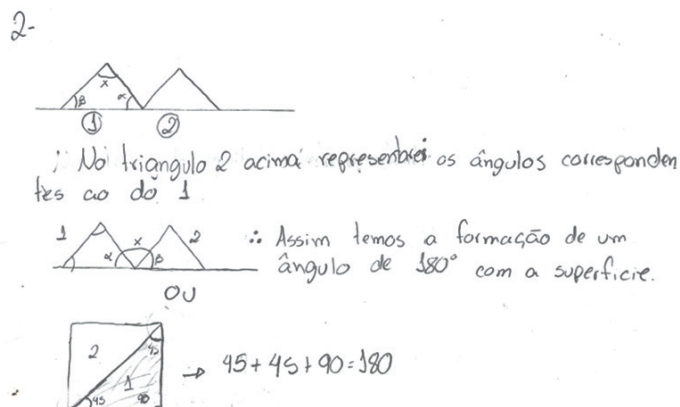 2-
x
β α
1 2
∴ No triangulo 2 acima representarei os ângulos corresponden
tes ao do 1
1 x 2
α β
∴ Assim temos a formação de um
ângulo de 180° com a superficie.
OU
2 45
1
45 90
→ 45+45+90=180